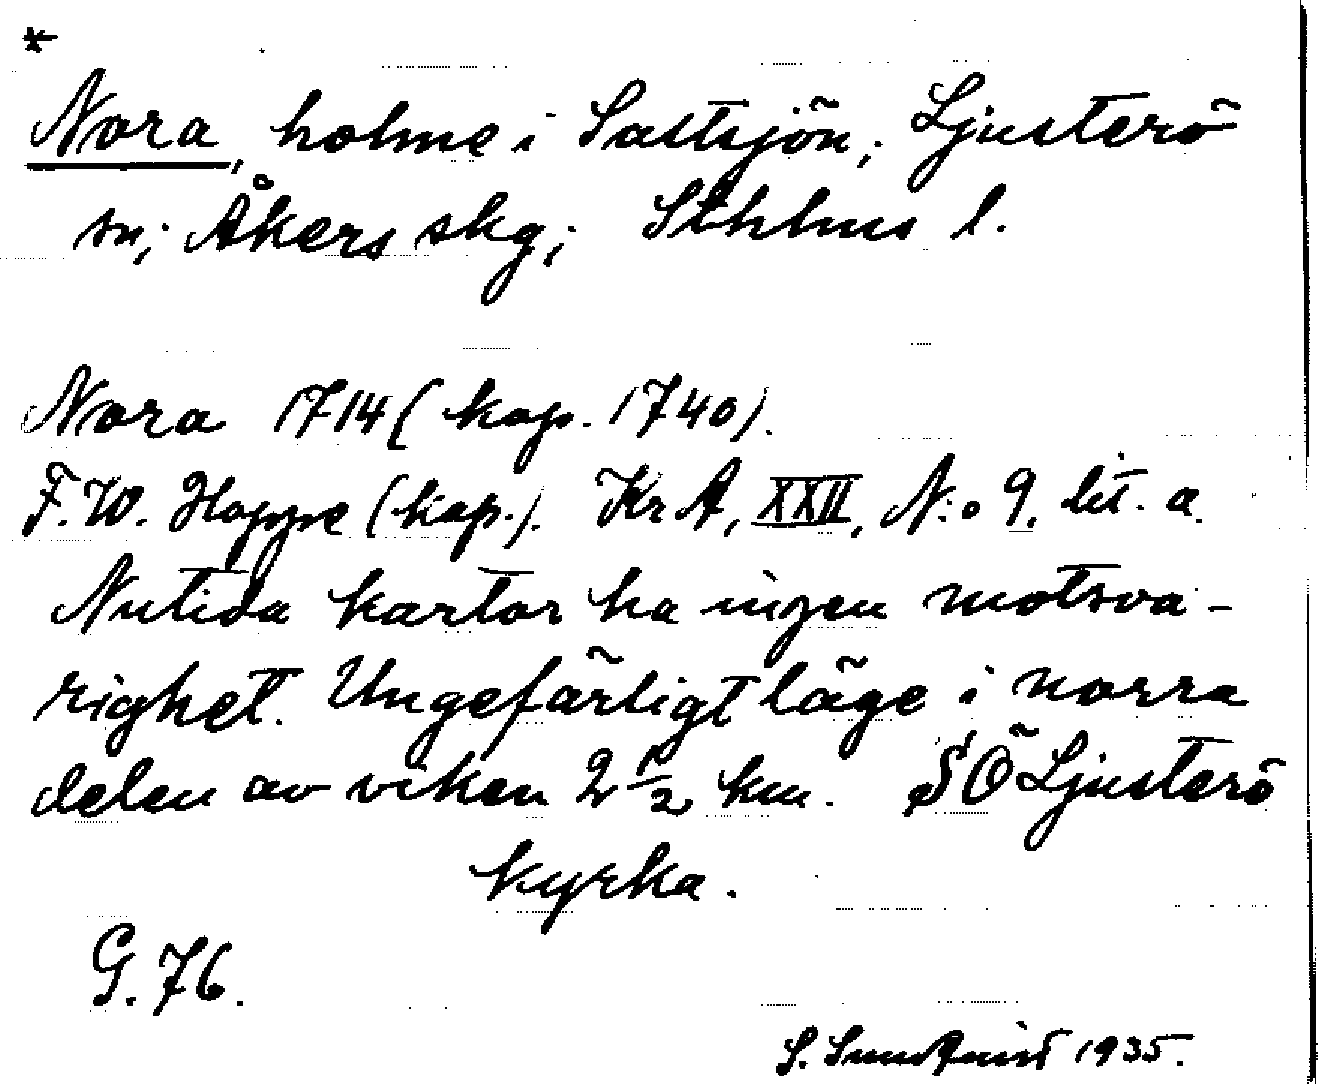 *
Nora, holme i Saltsjön; Ljusterö
sn; Åkers skg; Sthlms l.
Nora 1714 (kop. 1740).
F.W. Hoppe (kop.). KrA, XXII, N:o 9. lit. a.
Nutida kartor ha ingen motsva-
righet. Ungefärligt läge i norra
delen av viken 2 1/2 km. SÖ Ljusterö
kyrka.
G. 76.
S. Sundqvist 1935.